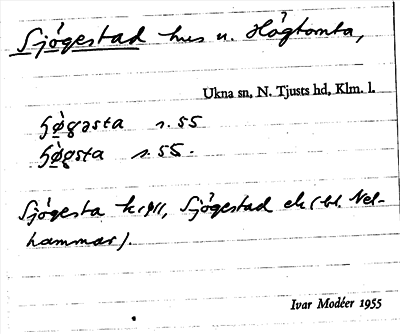 Sjögestad hus u. Högtomta,
Ukna sn, N. Tjusts hd, Klm. l.
s. 55
s. 55.
Sjögesta k., Sjögestad ek (bl. Nel-
hammar).
Ivar Modéer 1955